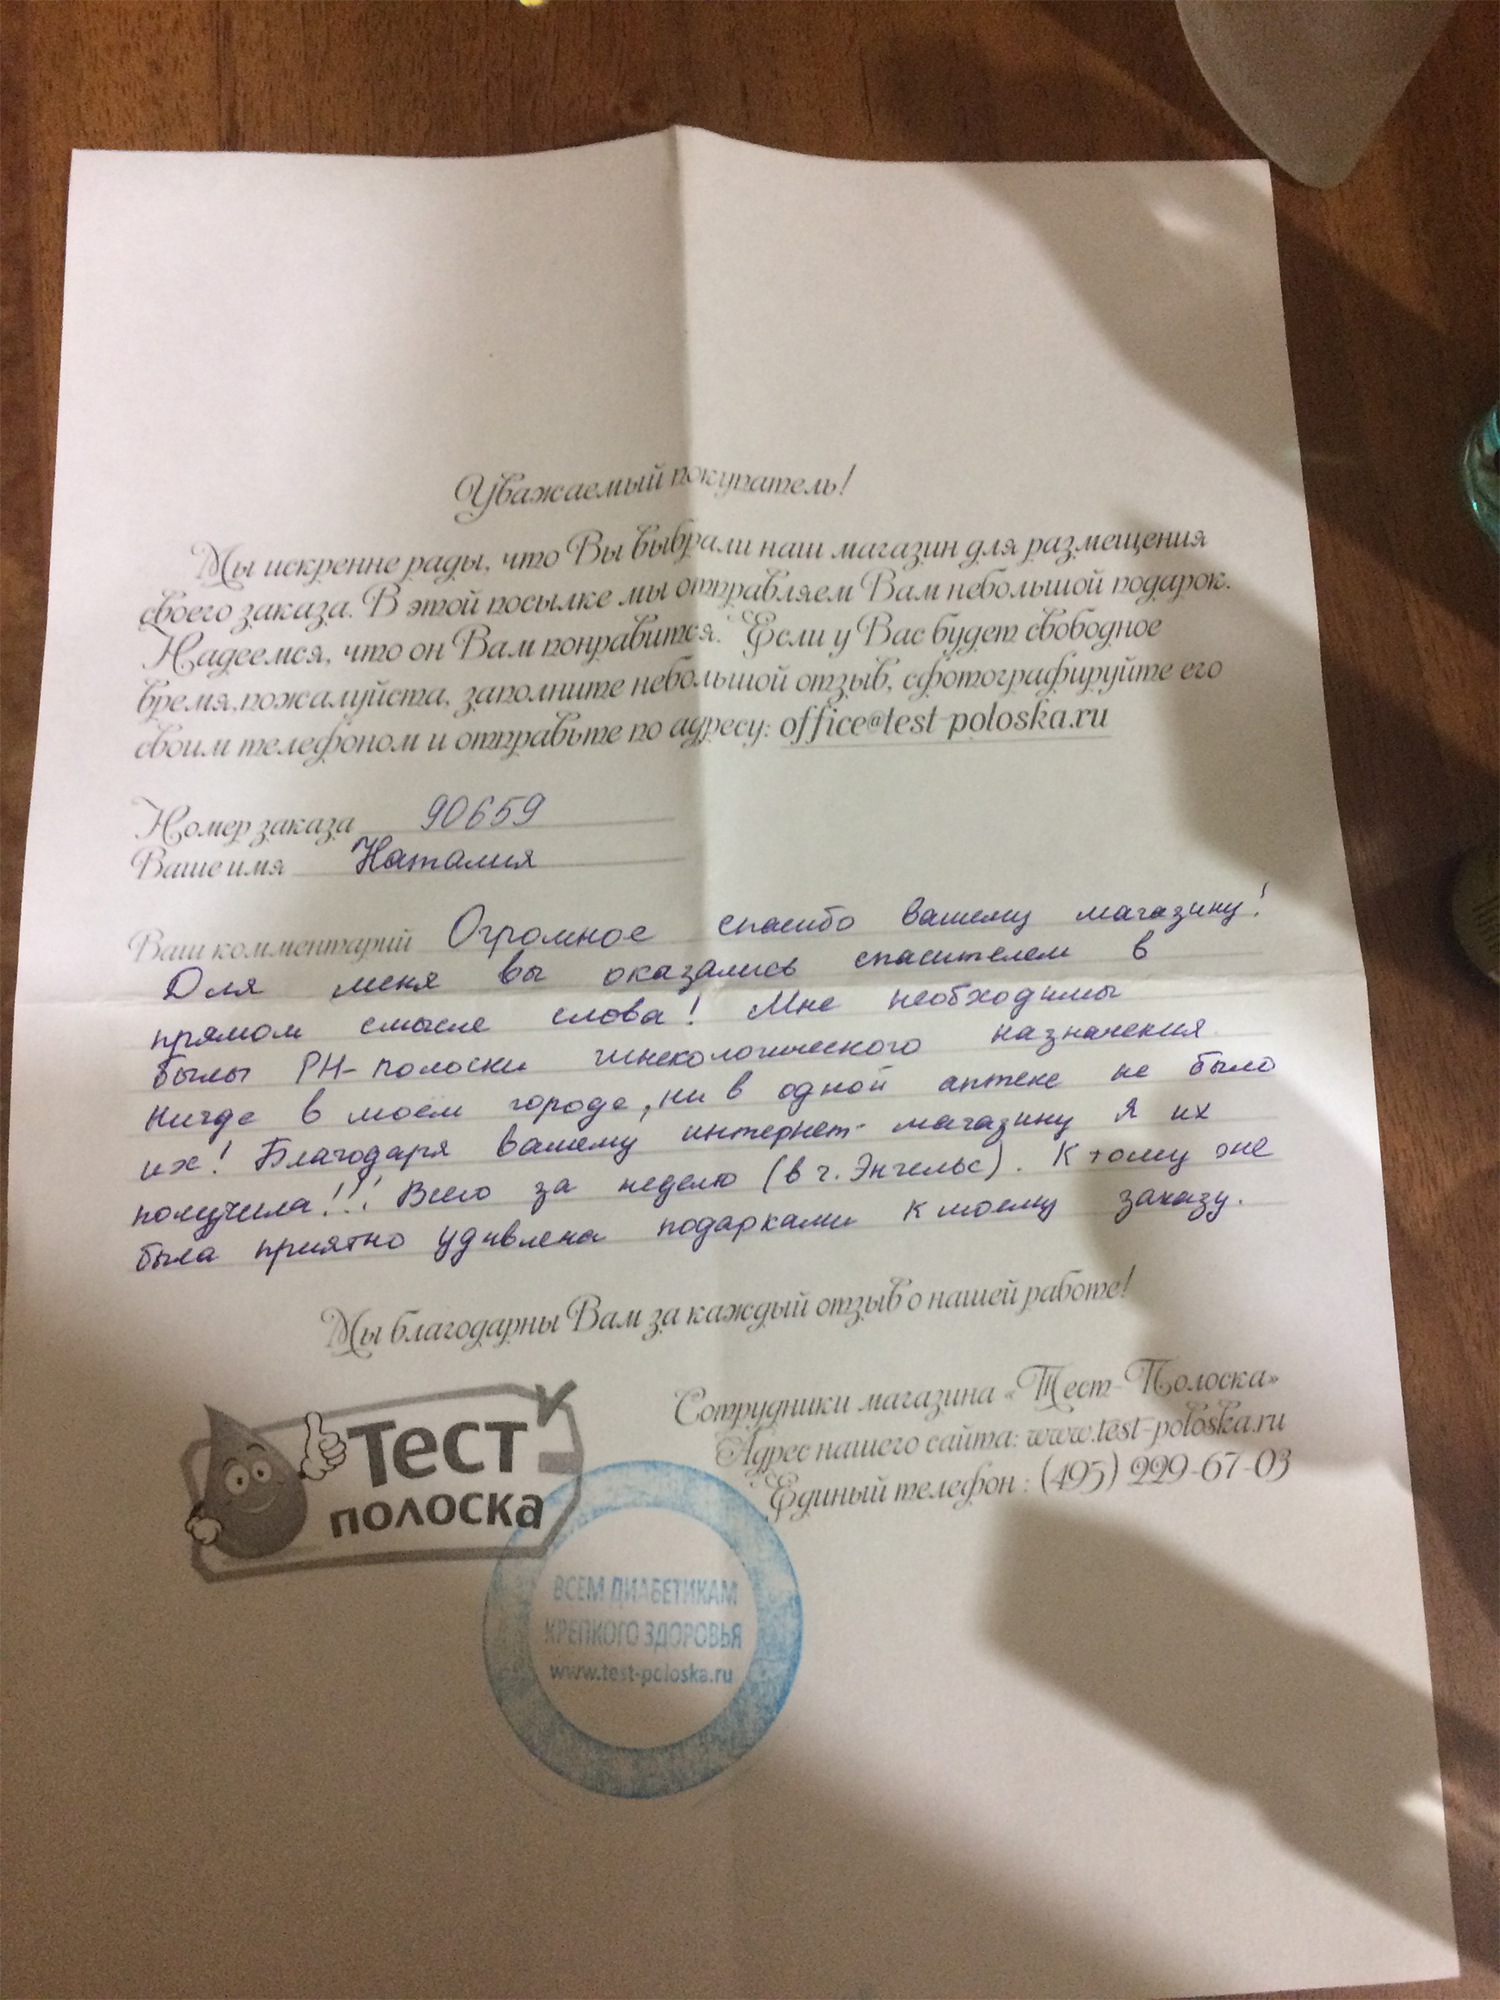 Уважаемый покупатель!
Мы искренне рады, что Вы выбрали наш магазин для размещения
своего заказа. В этой посылке мы отправляем Вам небольшой подарок.
Надеемся, что он Вам понравится. Если у Вас будет свободное
время, пожалуйста, заполните небольшой отзыв, сфотографируйте его
своим телефоном и отправьте по адресу: office@test-poloska.ru
Номер заказа 90659
Ваше имя Наталия
Ваш комментарий Огромное спасибо вашему магазину!
Для меня вы оказались спасителем в
прямом смысле слова! Мне необходимы
былы PH-полоски гинекологического назначения.
Нигде в моем городе, ни в одной аптеке не было
их! Благодаря вашему интернет-магазину я их
получила!!! Всего за неделю (в г. Энгельс). К тому же
была приятно удивлена подарками к моему заказу.
Мы благодарны Вам за каждый отзыв о нашей работе!
Сотрудники магазина «Тест-Полоска»
Адрес нашего сайта: www.test-poloska.ru
Единый телефон : (495) 229-67-03
Тест
полоска
ВСЕМ ДИАБЕТИКАМ
КРЕПКОГО ЗДОРОВЬЯ
www.test-poloska.ru